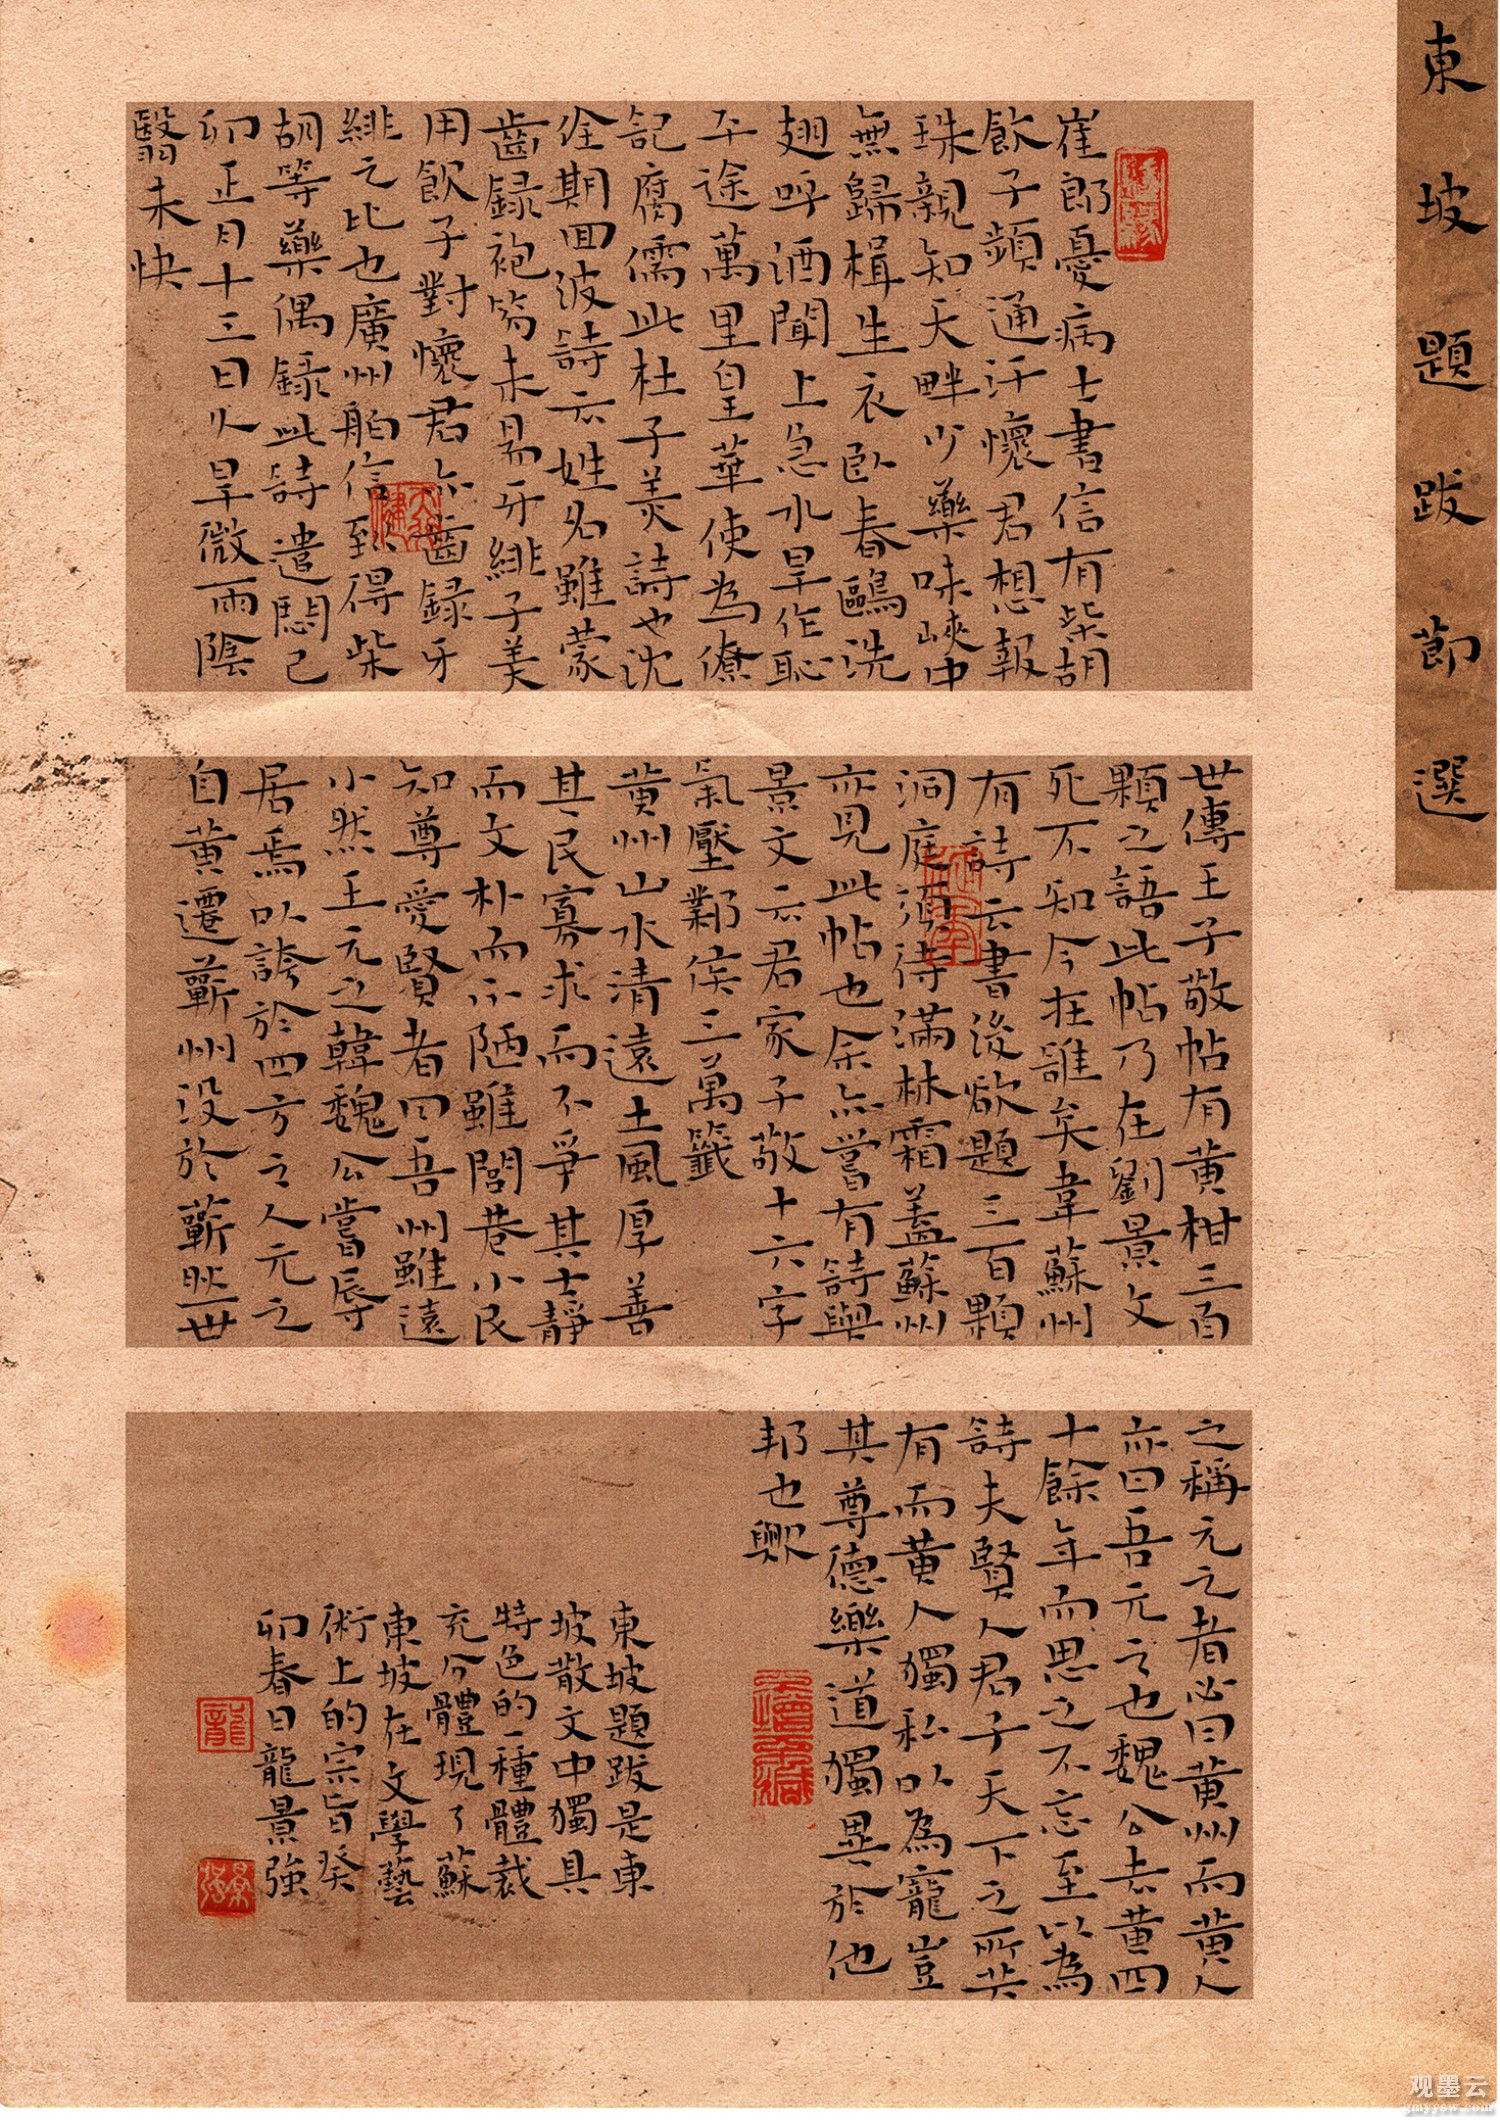 東坡題跋節選
崔郎憂病士書信有柴胡
飲子頻通汗懷君想報
珠親知天畔少藥味峽中
無歸楫生衣臥春鷗洗
翅呼酒聞上急水旱作恥
平途萬里皇華使為僚
記腐儒此杜子美詩也沈
佺期回波詩云姓名雖蒙
齒録袍笏未易牙緋子美
用飲子對懷君亦齒録牙
緋之比也廣州舶信到得柴
胡等藥偶録此詩遣悶己
卯正月十三日久旱微雨陰
翳未快
世傳王子敬帖有黄柑三百
顆之語此帖乃在劉景文
死不知今在誰矣韋蘇州
有詩云書後欲題三百顆
洞庭須待滿林霜蓋蘇州
亦見此帖也余亦嘗有詩與
景文云君家子敬十六字
氣壓鄴侯三萬籤
黄州山水清遠土風厚善
其民寡求而不爭其士靜
而文朴而不陋雖閭巷小民
知尊愛賢者曰吾州雖遠
小然王元之韓魏公嘗辱
居焉以誇於四方之人元之
自黄遷蘄州没於蘄然世
之稱元之者必曰黄州而黄人
亦曰吾元之也魏公去黄四
十餘年而思之不忘至以為
詩夫賢人君子天下之所共
有而黄人獨私以為寵豈
其尊德樂道獨異於他
邦也歟
東坡題跋是東
坡散文中獨具
特色的一種體裁
充分體現了蘇
東坡在文學藝
術上的宗旨癸
卯春日龍景強
观墨云
gmyysw.com